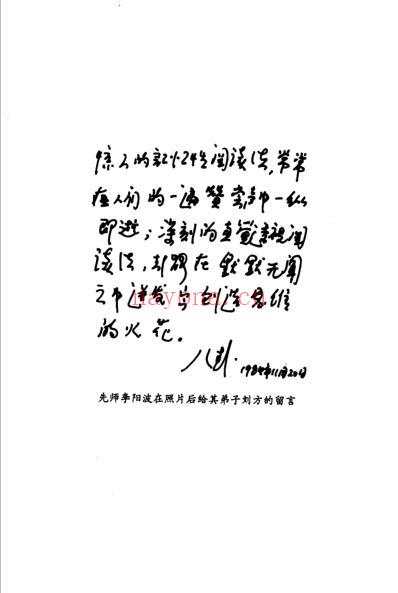 惊人的记忆性阅读法,常常
在人们的一遍赞赏中一纵
即逝;深刻的直阅
读法,却在默默无闻
之中迸发出创造思维
的火花。
1984年11月20日
先师李阳波在照片后给其弟子刘方的留言
nayona.cn